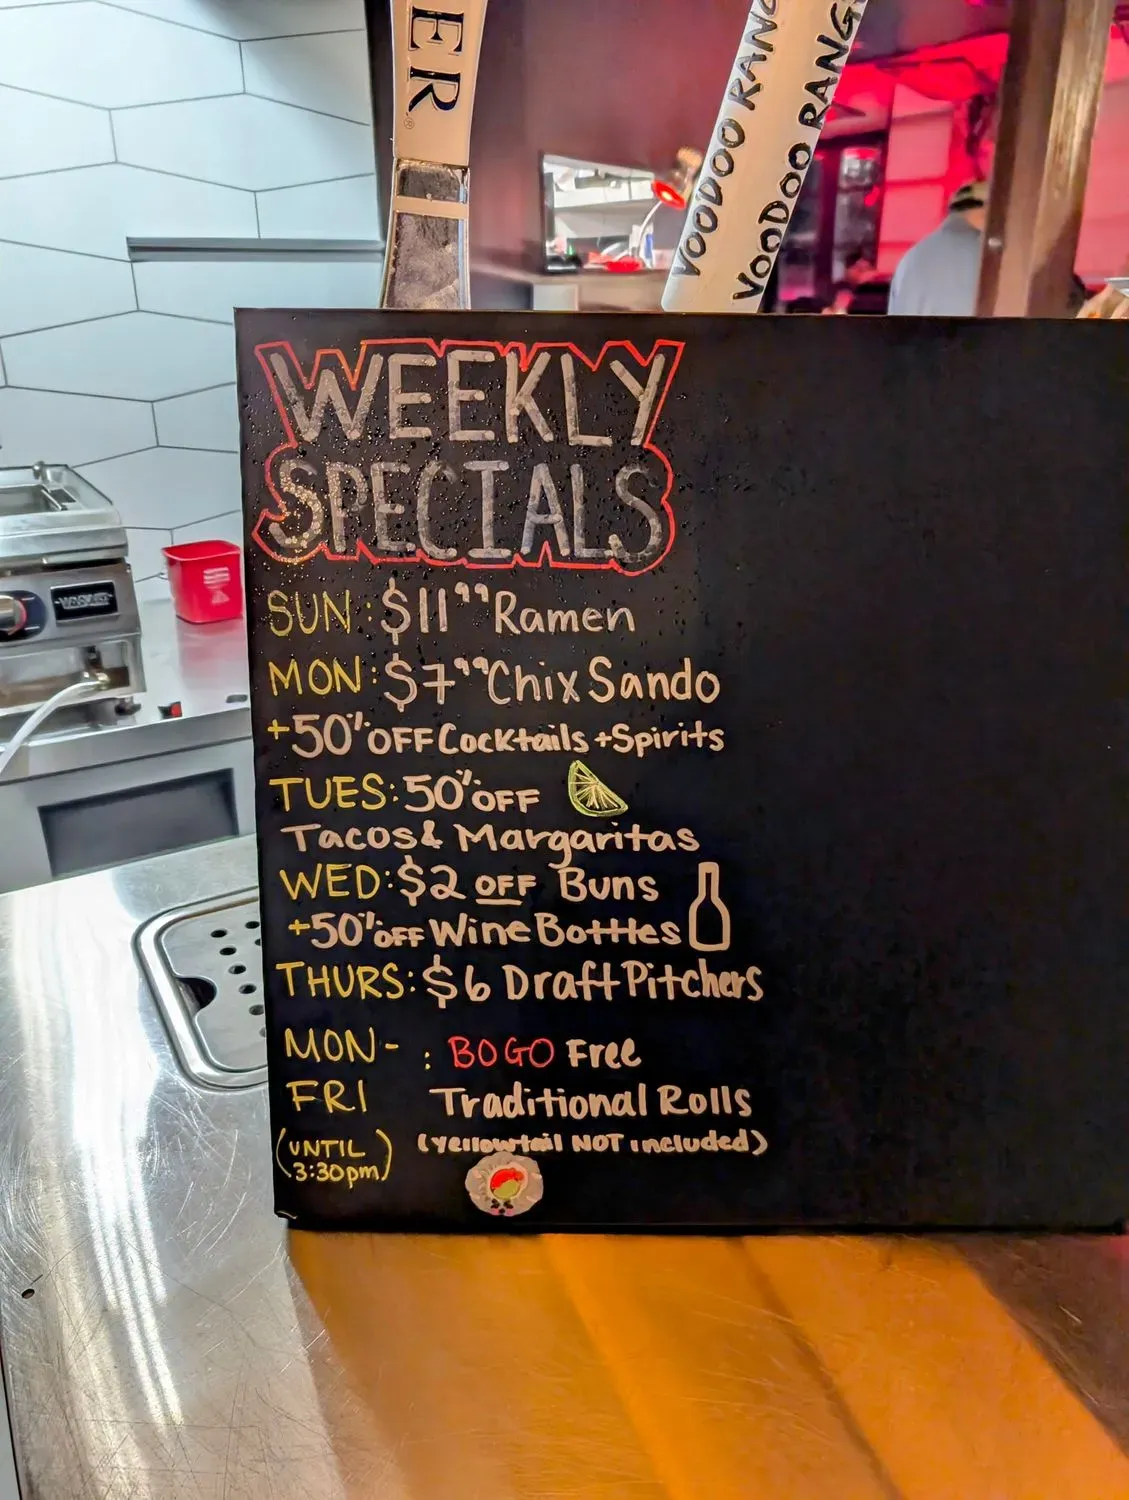 ER
®
VOODOO RANG
VOODOO RANGE
WEEKLY
SPECIALS
SUN: $11⁹⁹ Ramen
MON: $7⁹⁹ Chix Sando
+50% OFF Cocktails + Spirits
TUES: 50% OFF
Tacos & Margaritas
WED: $2 OFF Buns
+50% OFF Wine Bottles
THURS: $6 Draft Pitchers
MON- : BOGO Free
FRI Traditional Rolls
(UNTIL (Yellowtail NOT included)
3:30pm)